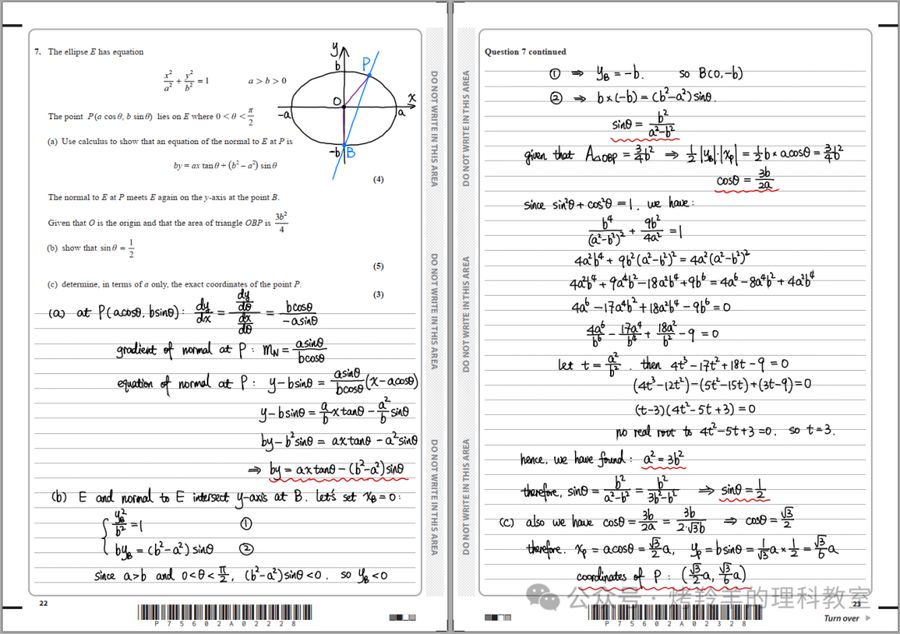 7. The ellipse E has equation
x²/a² + y²/b² = 1 a > b > 0
The point P(a cosθ, b sinθ) lies on E where 0 < θ < π/2
(a) Use calculus to show that an equation of the normal to E at P is
by = ax tanθ + (b² − a²) sinθ
(4)
The normal to E at P meets E again on the y-axis at the point B.
Given that O is the origin and that the area of triangle OBP is 3b²/4
(b) show that sinθ = 1/2
(5)
(c) determine, in terms of a only, the exact coordinates of the point P.
(3)
y
b
P
O
x
-a
a
-b
B
(a) at P(acosθ, bsinθ): dy/dx = (dy/dθ)/(dx/dθ) = bcosθ/-asinθ
gradient of normal at P: m_N = asinθ/bcosθ
equation of normal at P: y-bsinθ = asinθ/bcosθ (x-acosθ)
y-bsinθ = a/b xtanθ - a²/b sinθ
by-b²sinθ = axtanθ - a²sinθ
⇒ by = axtanθ - (b²-a²)sinθ
(b) E and normal to E intersect y-axis at B. let's set x_B = 0:
{ y_B²/b² = 1 ①
by_B = (b²-a²)sinθ ②
since a>b and 0<θ<π/2, (b²-a²)sinθ<0. so y_B<0
DO NOT WRITE IN THIS AREA
DO NOT WRITE IN THIS AREA
DO NOT WRITE IN THIS AREA
22
P75602A02228
DO NOT WRITE IN THIS AREA
DO NOT WRITE IN THIS AREA
DO NOT WRITE IN THIS AREA
Question 7 continued
① ⇒ y_B = -b. so B(0,-b)
② ⇒ b×(-b) = (b²-a²)sinθ.
sinθ = b²/(a²-b²)
given that A△OBP = 3/4 b² ⇒ 1/2|y_B|·|x_P| = 1/2 b × acosθ = 3/4 b²
cosθ = 3b/2a
since sin²θ + cos²θ = 1. we have:
b⁴/(a²-b²)² + 9b²/4a² = 1
4a²b⁴ + 9b²(a²-b²)² = 4a²(a²-b²)²
4a²b⁴ + 9a⁴b² - 18a²b⁴ + 9b⁶ = 4a⁶ - 8a⁴b² + 4a²b⁴
4a⁶ - 17a⁴b² + 18a²b⁴ - 9b⁶ = 0
4a⁶/b⁶ - 17a⁴/b⁴ + 18a²/b² - 9 = 0
let t = a²/b². then 4t³ - 17t² + 18t - 9 = 0
(4t³-12t²) - (5t²-15t) + (3t-9) = 0
(t-3)(4t²-5t+3) = 0
no real root to 4t²-5t+3=0. so t=3.
hence, we have found: a² = 3b²
therefore, sinθ = b²/(a²-b²) = b²/(3b²-b²) ⇒ sinθ = 1/2
(c) also we have cosθ = 3b/2a = 3b/(2·√3b) ⇒ cosθ = √3/2
therefore. x_P = acosθ = √3/2 a, y_P = bsinθ = 1/√3 a × 1/2 = √3/6 a
coordinates of P: (√3/2 a, √3/6 a)
公众号 · 烤羚羊的理科教室
23
P75602A02328
Turn over